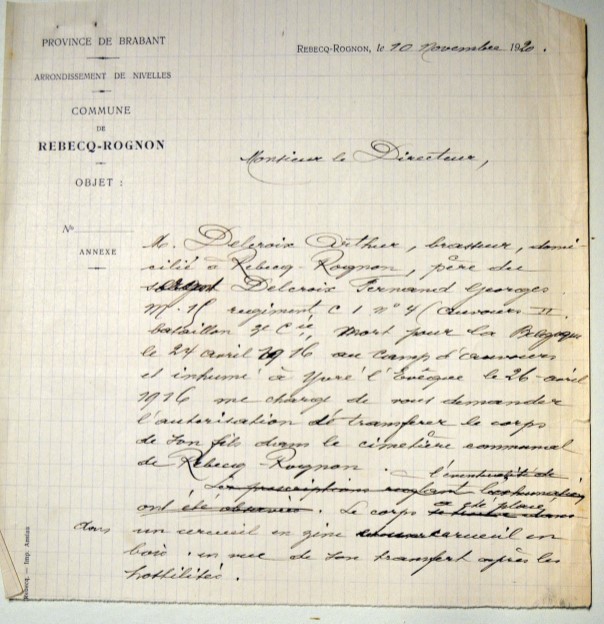 PROVINCE DE BRABANT
ARRONDISSEMENT DE NIVELLES
COMMUNE
DE
REBECQ-ROGNON
OBJET :
N°
ANNEXE
REBECQ-ROGNON, le 10 Novembre 1920.
Monsieur le Directeur,
M. Delcroix Arthur, brasseur, domi-
cilié à Rebecq-Rognon, père du
soldat Delcroix Fernand Georges
régiment C 1 n° 4 (auvours II
bataillon Cie, Mort pour la Belgique
le 24 avril 1916 au camp d'auvours
et inhumé à Yvré l'Evêque le 26 avril
1916 me charge de vous demander
l'autorisation de transférer le corps
de son fils dans le cimetière communal
de Rebecq-Rognon. l'éventualité de
Les prescriptions
ont été observées. Le corps a été placé
dans un cercueil en zinc cercueil en
bois en vue de son transfert après les
hostilités.
Rebecq. — Imp. Amian